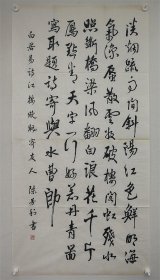 淡烟疏雨间斜陽江色鲜明海
氣涼蜃散雲收破樓閣虹残水
照斷橋梁風翻白浪花千片
雁點青天字一行好著丹青圖
寫取題诗寄與水曹郎
白居易诗江樓晚眺寄友人 陈芳
書